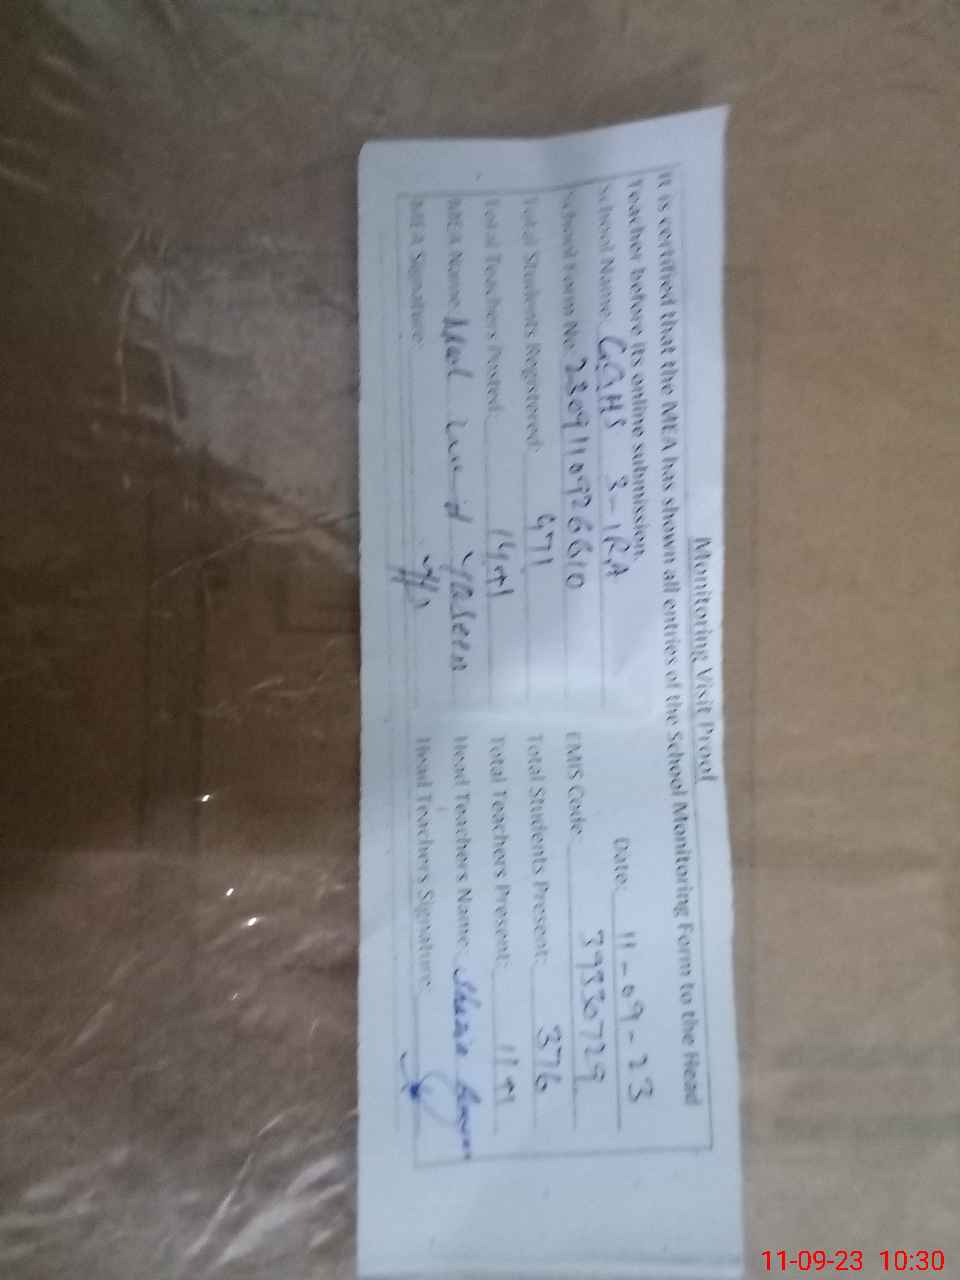 Monitoring Visit Proof
It is certified that the MEA has shown all entries of the School Monitoring Form to the Head
Teacher before its online submission.
Date: 11-09-23
School Name: GGHS 3-1RA
School Form No: EMIS Code: 39330729
Total Students Registered: 471 Total Students Present: 376
Total Teachers Posted: Total Teachers Present:
MEA Name: Yaseen Head Teachers Name: Shazia
MEA Signature: Head Teachers Signature:
11-09-23 10:30